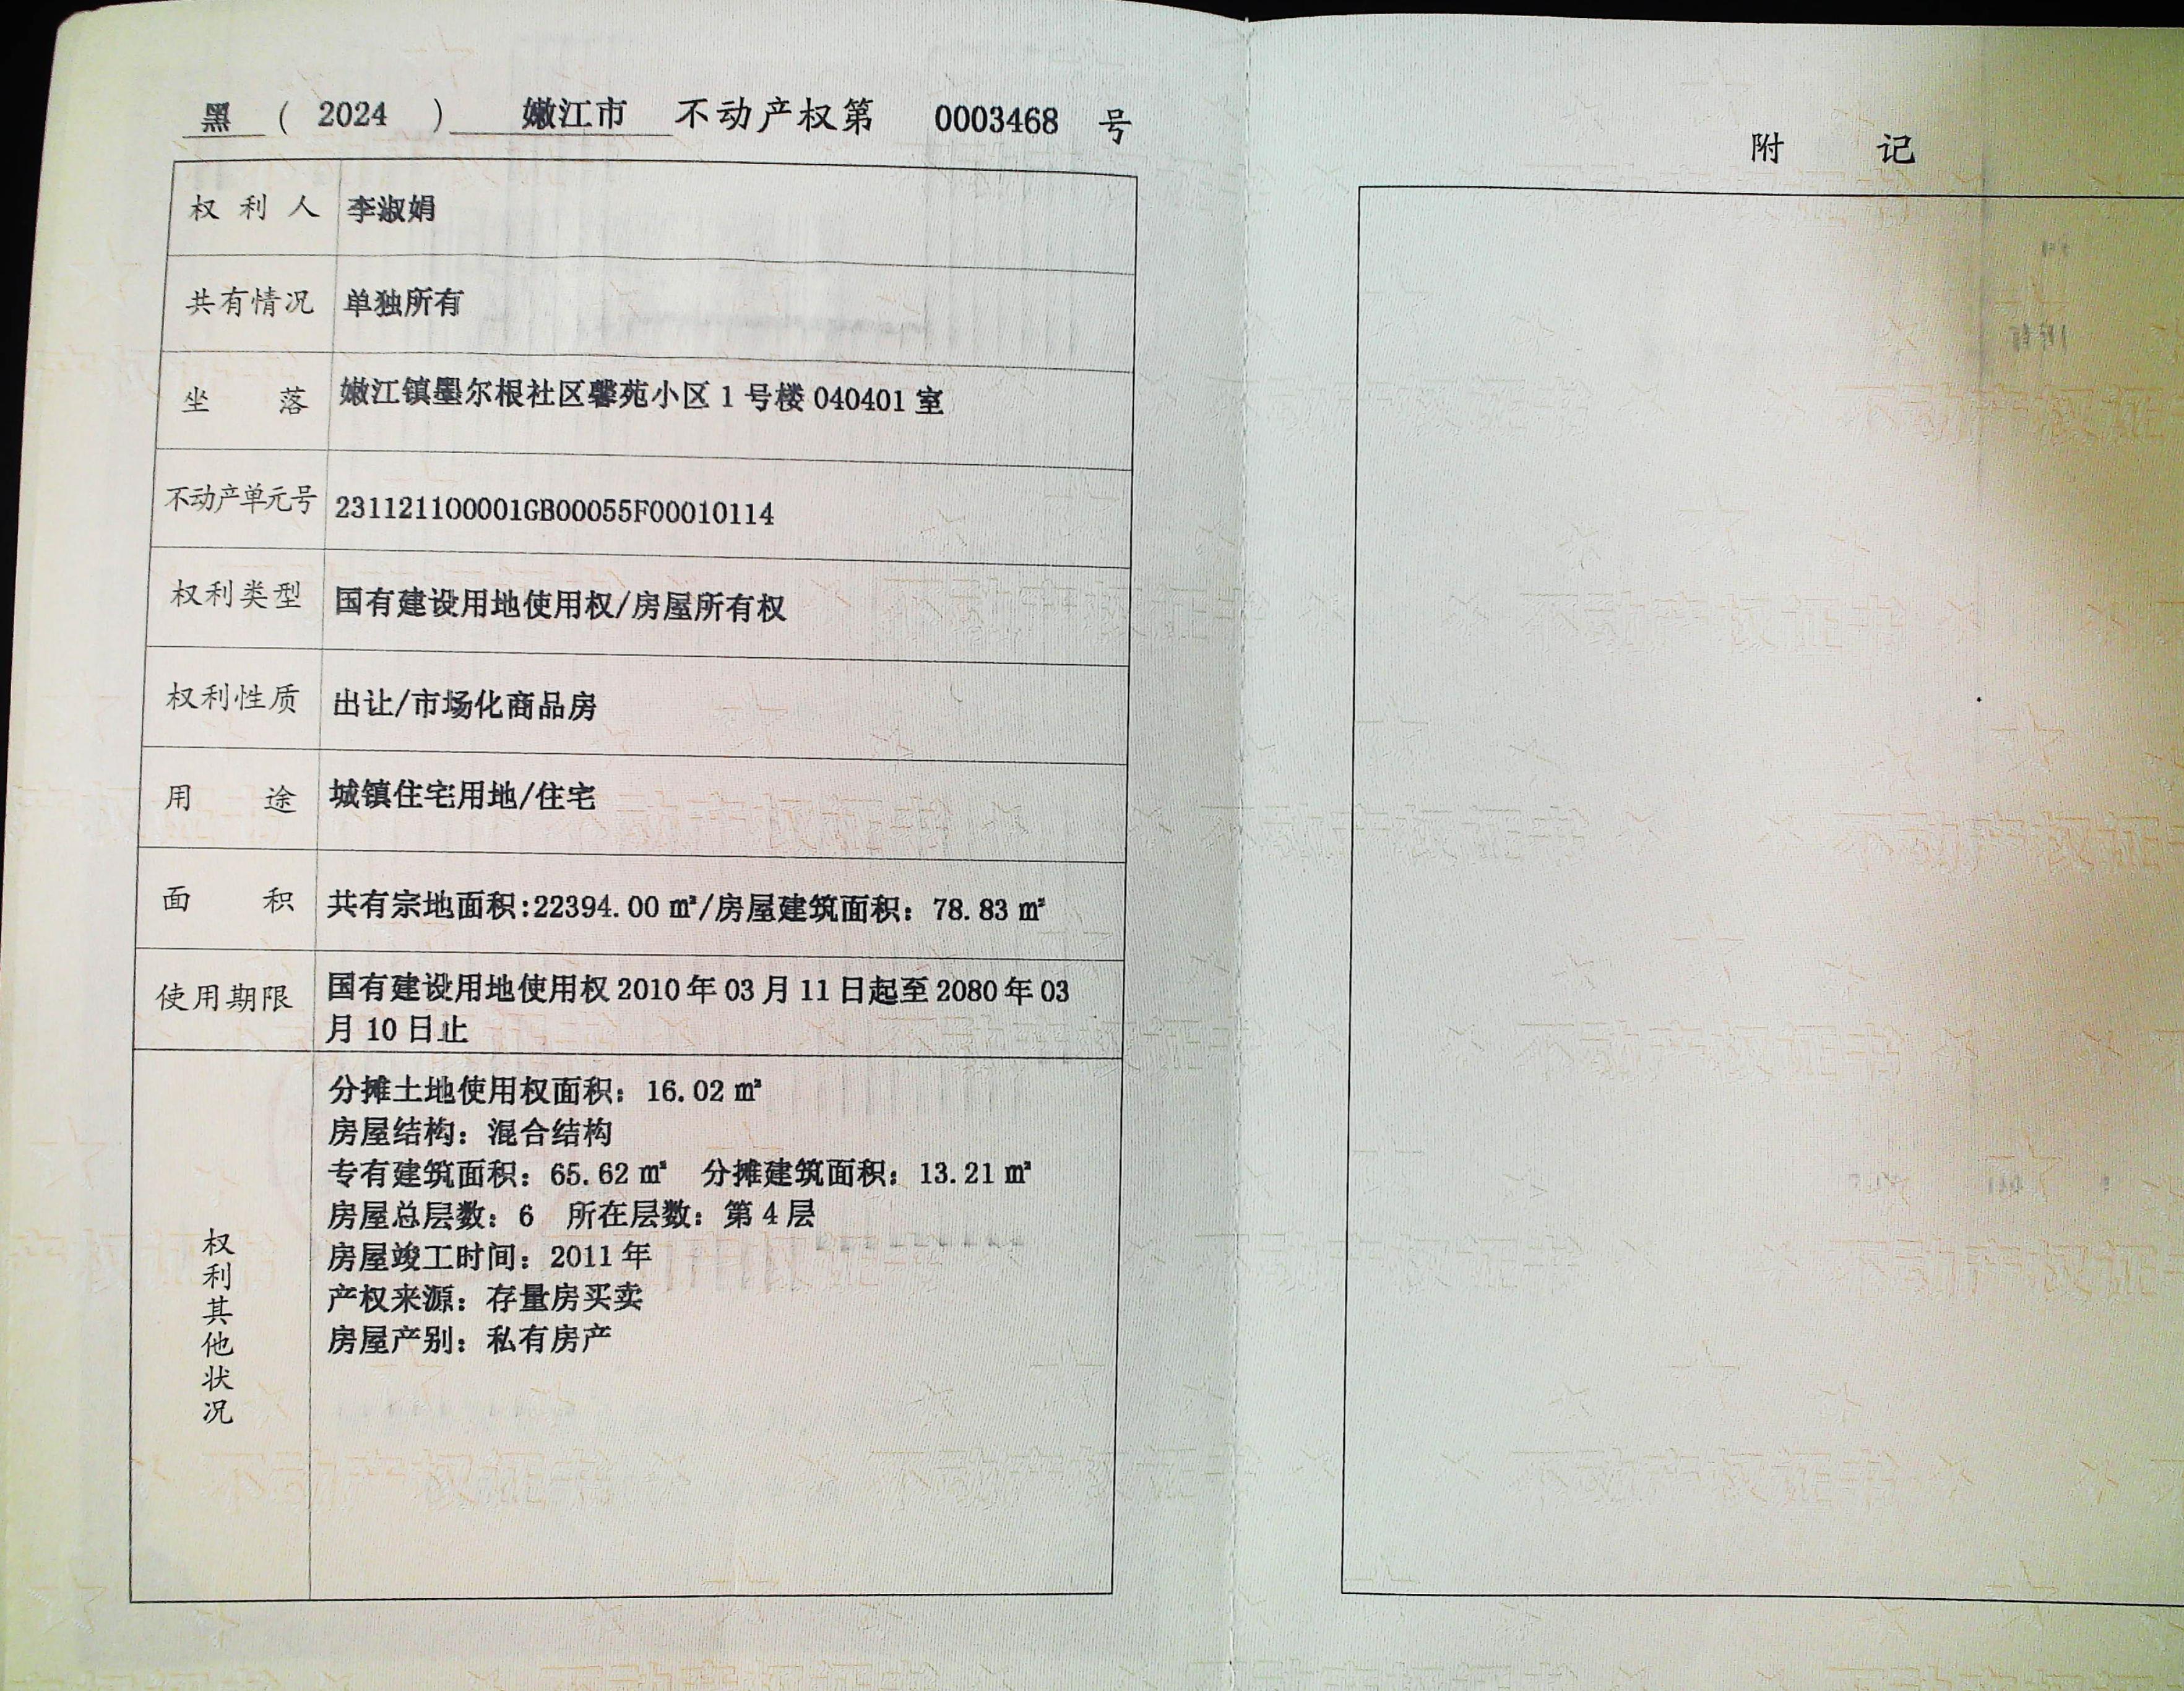 黑 ( 2024 ) 嫩江市 不动产权第 0003468 号
权利人 李淑娟
共有情况 单独所有
坐落 嫩江镇墨尔根社区馨苑小区1号楼040401室
不动产单元号 231121100001GB00055F00010114
权利类型 国有建设用地使用权/房屋所有权
权利性质 出让/市场化商品房
用途 城镇住宅用地/住宅
面积 共有宗地面积:22394.00㎡/房屋建筑面积：78.83㎡
使用期限 国有建设用地使用权2010年03月11日起至2080年03
月10日止
权利其他状况
分摊土地使用权面积：16.02㎡
房屋结构：混合结构
专有建筑面积：65.62㎡ 分摊建筑面积：13.21㎡
房屋总层数：6 所在层数：第4层
房屋竣工时间：2011年
产权来源：存量房买卖
房屋产别：私有房产
附记